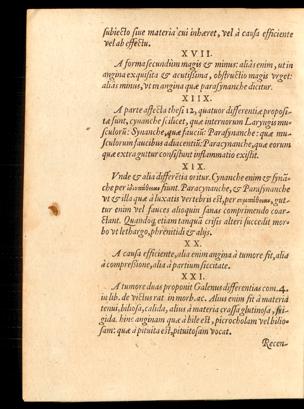 subiecto siue materia cui inhæret, vel à causa efficiente
vel ab effectu.
XVII.
A forma secundùm magis & minus: aliàs enim, ut in
angina exquisita & acutissima, obstructio magis vrget:
aliàs minus, vt in angina quæ parasynanche dicitur.
XIIX.
A parte affecta thesi 12, quatuor differentiæ proposi-
tæ sunt, cynanche scilicet, quæ internorum Laryngis mu-
sculorũ: Synanche, quæ fauciũ: Parasynanche: quæ mu-
sculorum faucibus adiacentiũ: Paracynanche, quæ eorum
quæ extra guttur consistunt inflammatio existit.
XIX.
Vnde & alia differẽtia oritur. Cynanche enim & synã-
che per fiunt. Paracynanche, & Parasynanche
vt & illa quæ à luxatis vertebris est, per gut-
tur enim vel fauces alioquin sanas comprimendo coar-
ctant. Quandoq́; etiam tanquã crisis alteri succedit mor-
bo vt lethargo, phrenitidi & alijs.
XX.
A causa efficiente, alia enim angina à tumore fit, alia
à compressione, alia à partium siccitate.
XXI.
A tumore duas proponit Galenus differentias com. 4.
in lib. de victus rat in morb. ac. Alius enim fit à materia
tenui, biliosa, calida, alius à materia crassa glutinosa, fri-
gida. hinc anginam quæ à bile est, picrocholam vel bilio-
sam: quæ à pituita est, pituitosam vocat.
Recen-